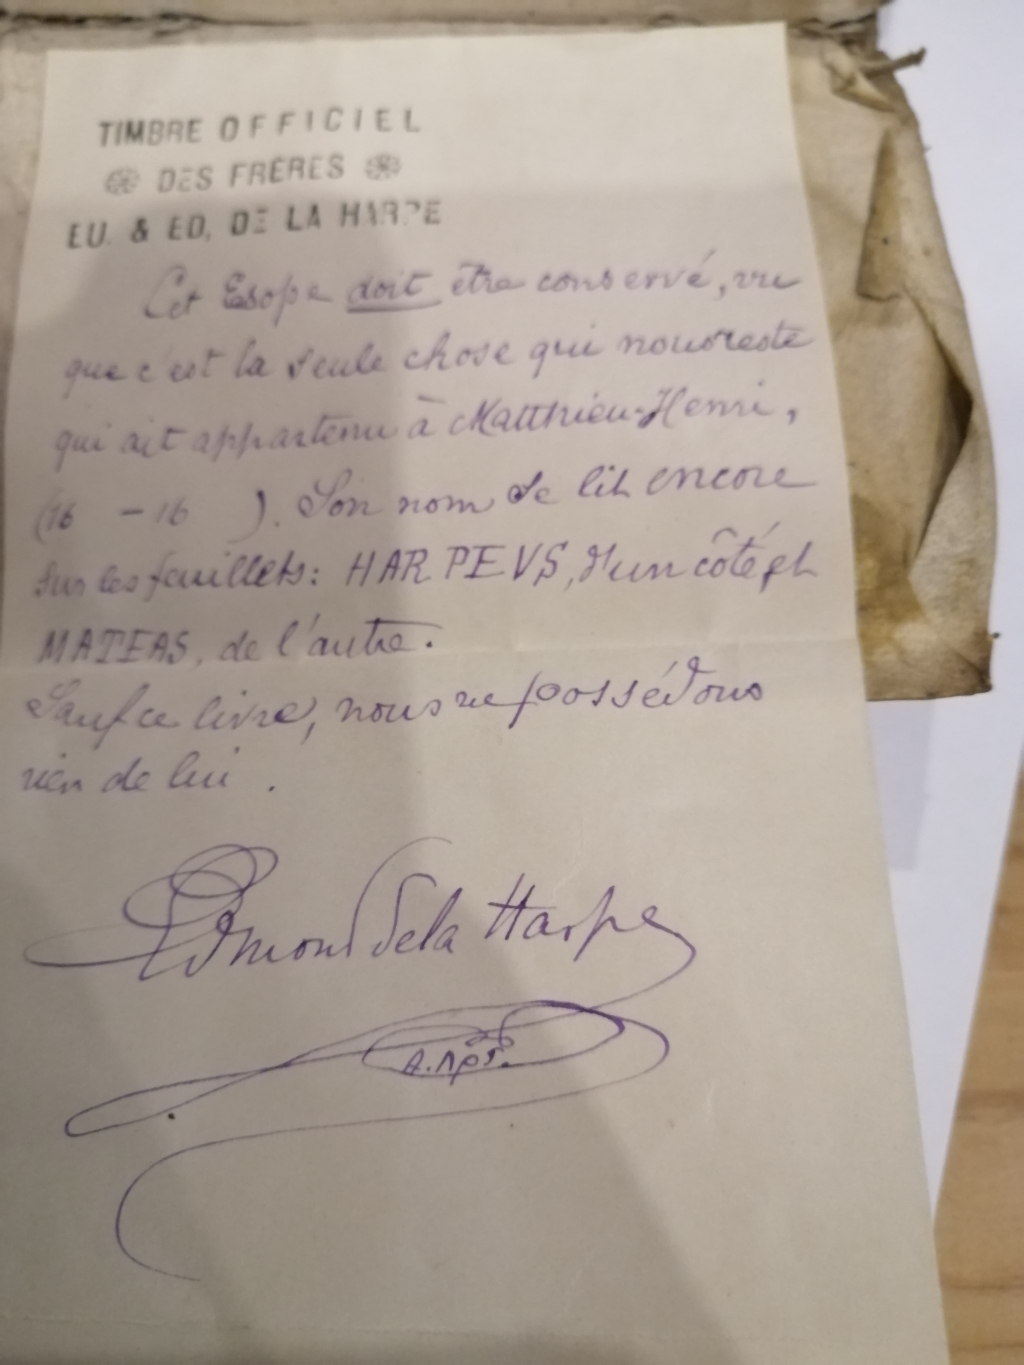 TIMBRE OFFICIEL
DES FRÈRES
EU. & ED. DE LA HARPE
Cet Esope doit être conservé, vu
que c'est la seule chose qui nous reste
qui ait appartenu à Matthieu-Henri,
(16 - 16 ). Son nom se lit encore
sur les feuillets: HARPEVS, d'un côté, et
MATEAS, de l'autre.
Sauf ce livre, nous ne possédons
rien de lui.
Edmond de la Harpe